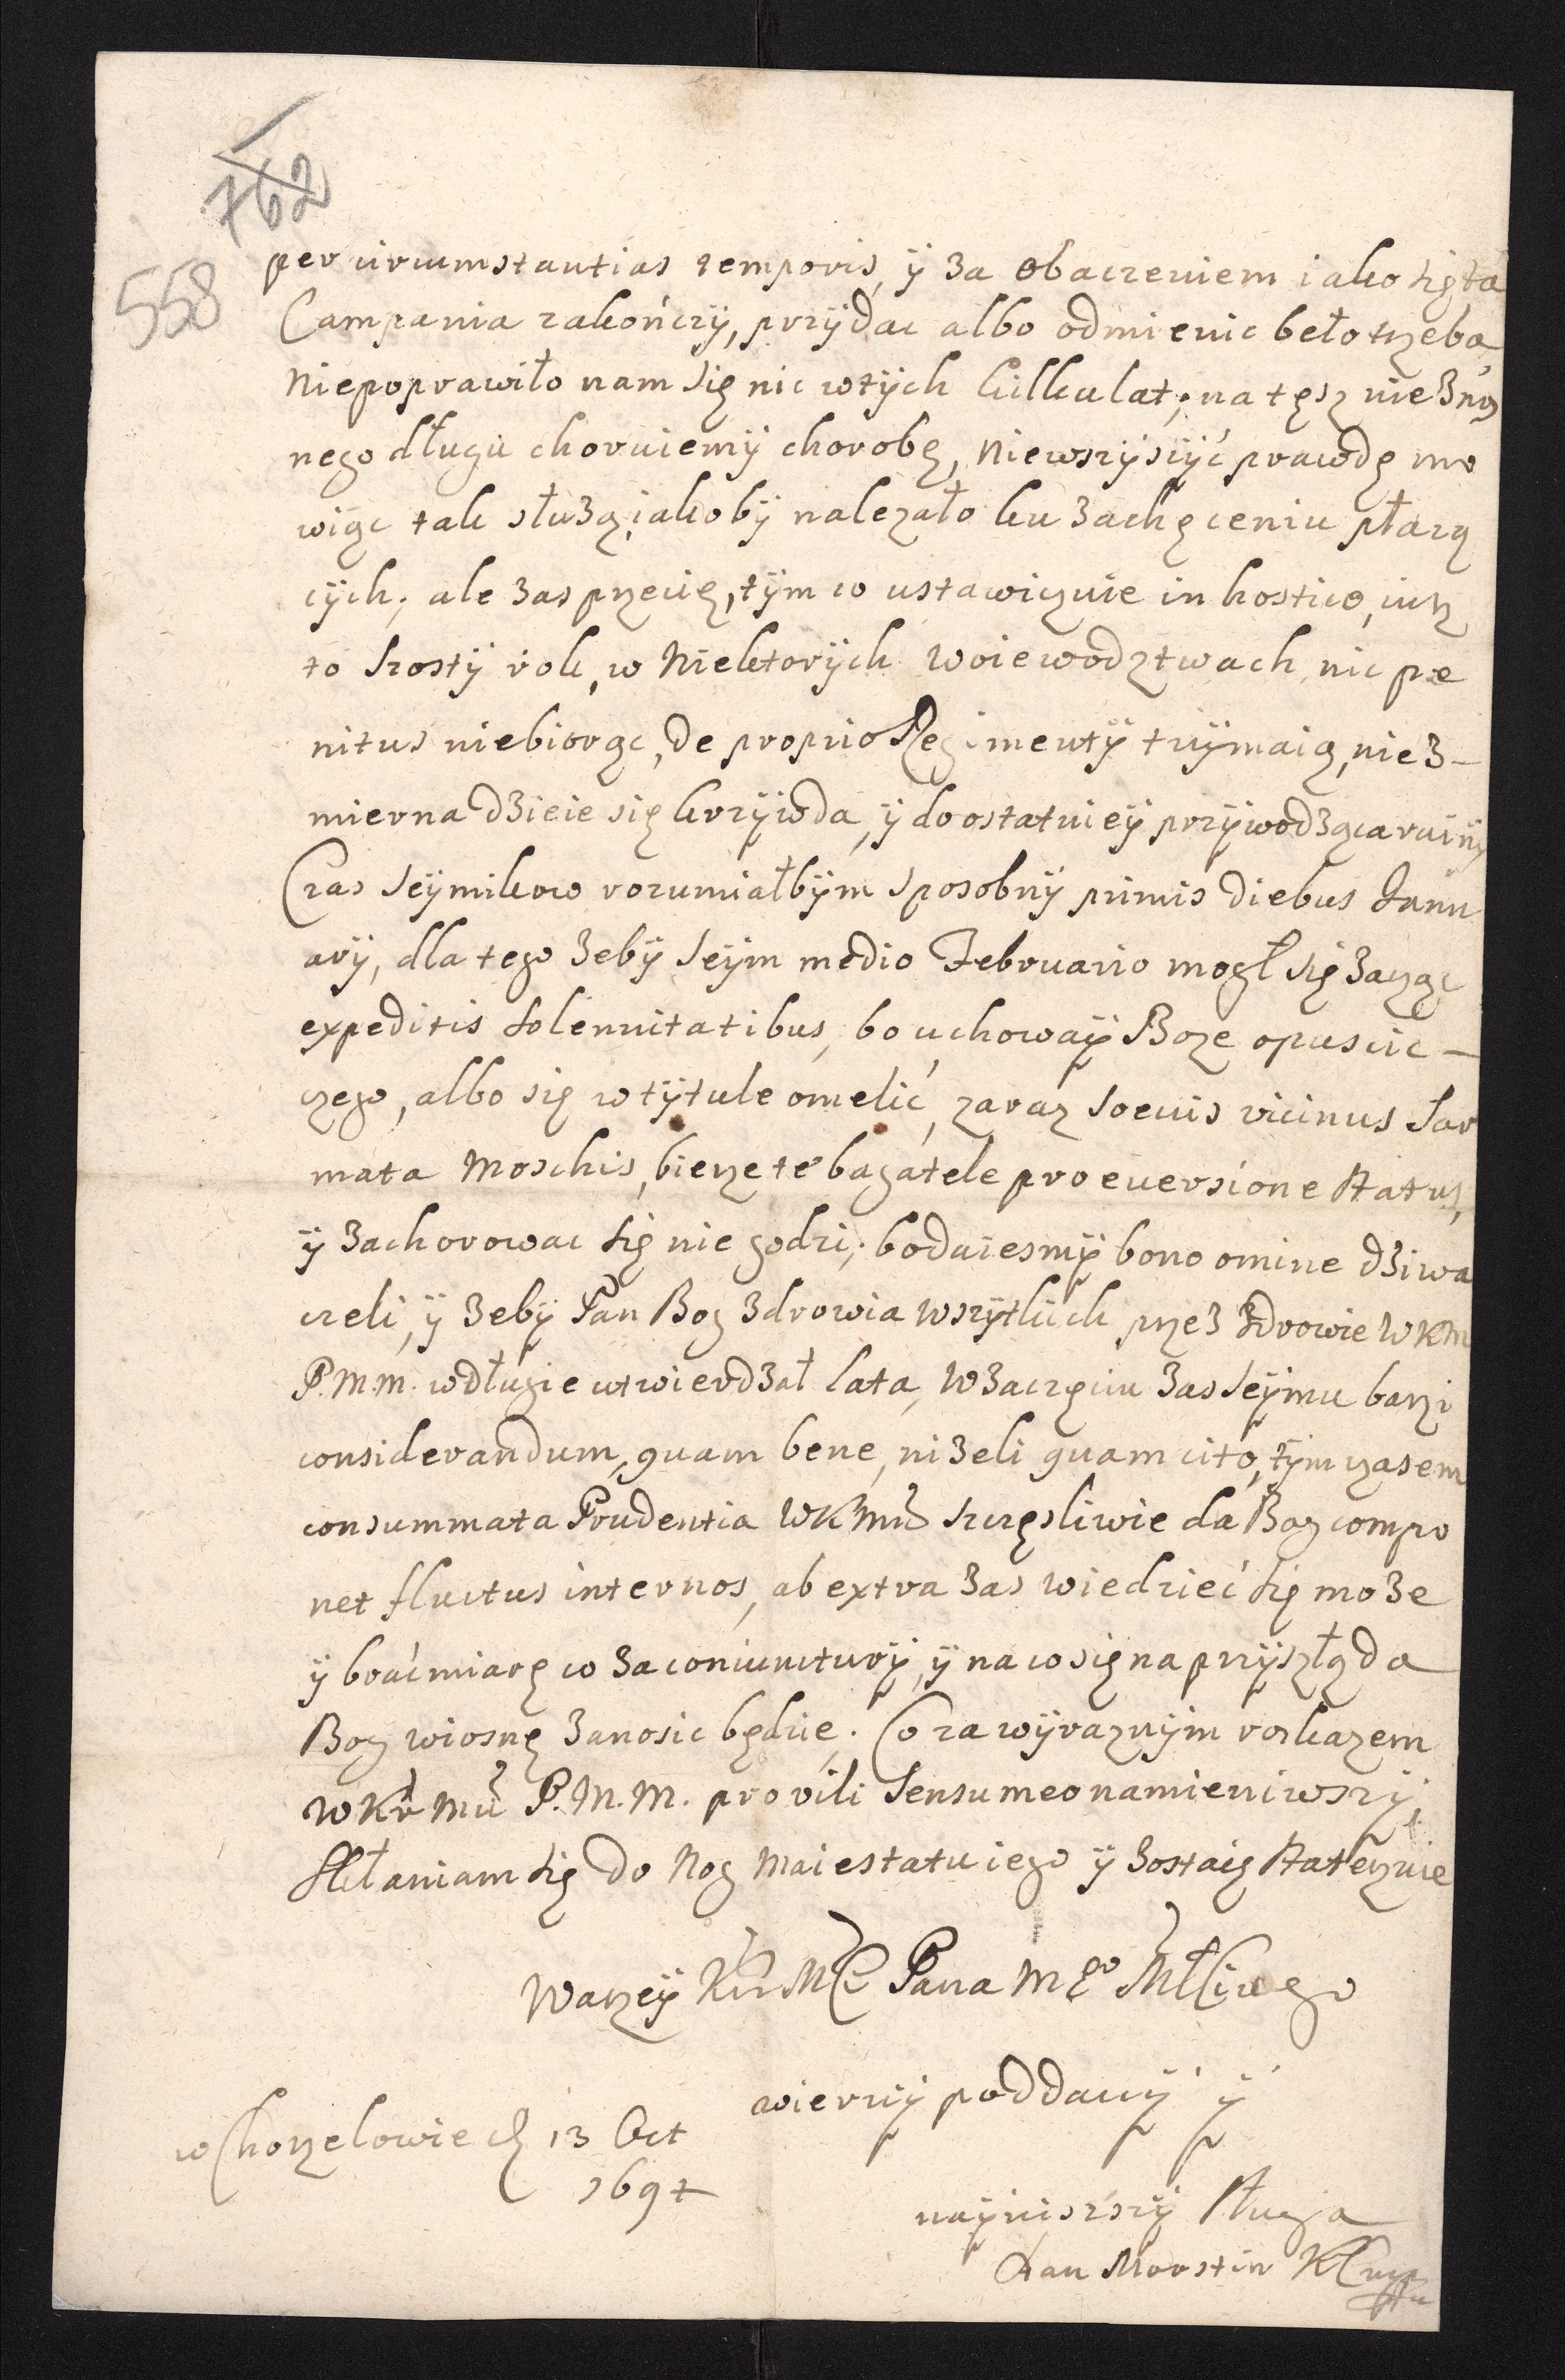 762
558
per circumstantias temporis, ÿ za obaczeniem iako się ta
Campania zakończÿ, przÿdac albo odmienic beło trzeba
Niepoprawiło nam się nic wtÿch kilku lat; na tęsz niezno
nego długu choruiemÿ chorobę, Niewszÿsiÿć prawdę mo
wiąc tak służą, iakobÿ nalezało ku zachęceniu płazą
cÿch; ale zas przecię, tÿm co ustawicznie in hostico, iusz
to szostÿ rok, w Niektorÿch woiewodztwach nic pe
nitus niebiorąc, de proprio Regimentÿ trzÿmaią, niez-
mierna dzieie się krzÿwda, ÿ do ostatnieÿ przÿwodząca ruinÿ
Czas Seÿmikow rozumiałbÿm sposobnÿ primis diebus Janu
arÿ, dla tego zebÿ Seÿm medio Februario mogł się zacząc
expeditis solennitatibus, bo uchowaÿ Boze opuscic -
czego, albo się w tÿtule omelić, zaraz soevis vicinus Sar
mata Moschis, bierze te bagatele pro eversione status,
ÿ zachorowac się nie godzi; bodaiesmÿ bono omine dziwa
czeli, ÿ zebÿ Pan Bog zdrowia wszÿtkich przez zdrowie WKM
P.M.M. w długie utwierdzał lata, W zaczęciu zas Seÿmu barzi
considerandum, quam bene, nizeli quam cito, tÿm czasem
consummata Prudentia WKMci szczęsliwie da Bog compo
net fluctus internos, ab extra zas wiedzieć się moze
ÿ brać miarę co za coniuncturÿ, ÿ na co się na przÿszłą da
Bog wiosnę zanosic będzie. Co za wÿraznÿm roskazem
WKr Mci P.M.M. pro vili sensu meo namieniwszÿ,
skłaniam się do Nog Maiestatu iego ÿ zostaię statecznie
Waszeÿ Kr Mci Pana Mego Młciwego
wiernÿ poddanÿ ÿ
w Chorzelowie d 13 Oct
1694
naÿniszszÿ sługa
Jan Morstin